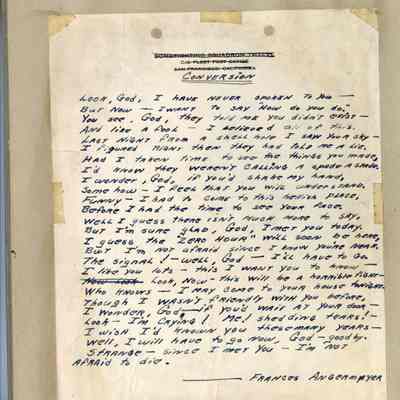 BOMBFIGHTING SQUADRON
C/O FLEET POST OFFICE
SAN FRANCISCO, CALIFORNIA
CONVERSION
LOOK, GOD, I HAVE NEVER SPOKEN TO YOU —
BUT NOW — I WANT TO SAY "HOW DO YOU DO."
YOU SEE, GOD, THEY TOLD ME YOU DIDN'T EXIST —
AND LIKE A FOOL — I BELIEVED all of this.
LAST NIGHT FROM A SHELL HOLE I SAW YOUR SKY —
I FIGURED RIGHT THEN THEY HAD TOLD ME A LIE.
HAD I TAKEN TIME TO SEE THE THINGS YOU MADE,
I'D KNOW THEY WEREN'T CALLING A SPADE A SPADE.
I WONDER, GOD, IF YOU'D SHAKE MY HAND,
SOMEHOW — I FEEL THAT YOU WILL UNDERSTAND.
FUNNY — I HAD TO COME TO THIS HELLISH PLACE,
BEFORE I HAD THE TIME TO SEE YOUR FACE.
WELL I GUESS THERE ISN'T MUCH MORE TO SAY,
BUT I'M SURE GLAD, GOD, I MET YOU TODAY.
I GUESS THE "ZERO HOUR" WILL SOON BE HERE,
BUT I'M NOT AFRAID SINCE I KNOW YOU'RE NEAR.
THE SIGNAL! — WELL, GOD — I'LL HAVE TO GO
I LIKE YOU LOTS — THIS I WANT YOU TO KNOW —
NOW LOOK LOOK NOW — THIS WILL BE A HORRIBLE FIGHT —
WHO KNOWS — I MAY COME TO YOUR HOUSE TONIGHT.
THOUGH I WASN'T FRIENDLY WITH YOU BEFORE,
I WONDER, GOD, IF YOU'D WAIT AT YOUR DOOR —
LOOK — I'M CRYING! ME! SHEDDING TEARS! —
I WISH I'D KNOWN YOU THESE MANY YEARS —
WELL, I WILL HAVE TO GO NOW, GOD — GOODBY.
STRANGE — SINCE I MET YOU — I'M NOT
AFRAID TO DIE.
FRANCES ANGERMAYER